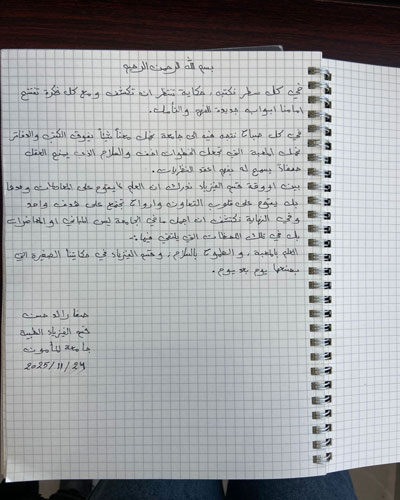 بسم الله الرحمن الرحيم
في كل سطر نكتب، حكاية تنتظر ان تكتشف ومع كل فكرة تفتح
امامنا ابواب جديدة للفهم والتأمل.
في كل صباح نتجه فيه الى جامعة نحمل معنا شيئاً يفوق الكتب والدفاتر
نحمل المحبة التي تجعل الخطوات اخف والسلام الذي يمنح العقل
يسمع له بفهم اعقد النظريات.
بين اروقة قسم الفيزياء ندرك ان العلم لا يقوم على المعادلات وحدها
بل يقوم على قلوب التعاون وارواح تجتمع على هدف واحد
وفي النهاية نكتشف ان اجمل مافي الجامعة ليس المباني او المحاضرات
بل في تلك اللحظات التي يلتقي فيها:-
العلم بالمحبة، والطموح بالسلام، وقسم الفيزياء في حكايتنا الصغيره التي
نصنعها يوم بعد يوم.
صفا رائد حسن
قسم الفيزياء الطبية
جامعة المأمون
2025/11/24